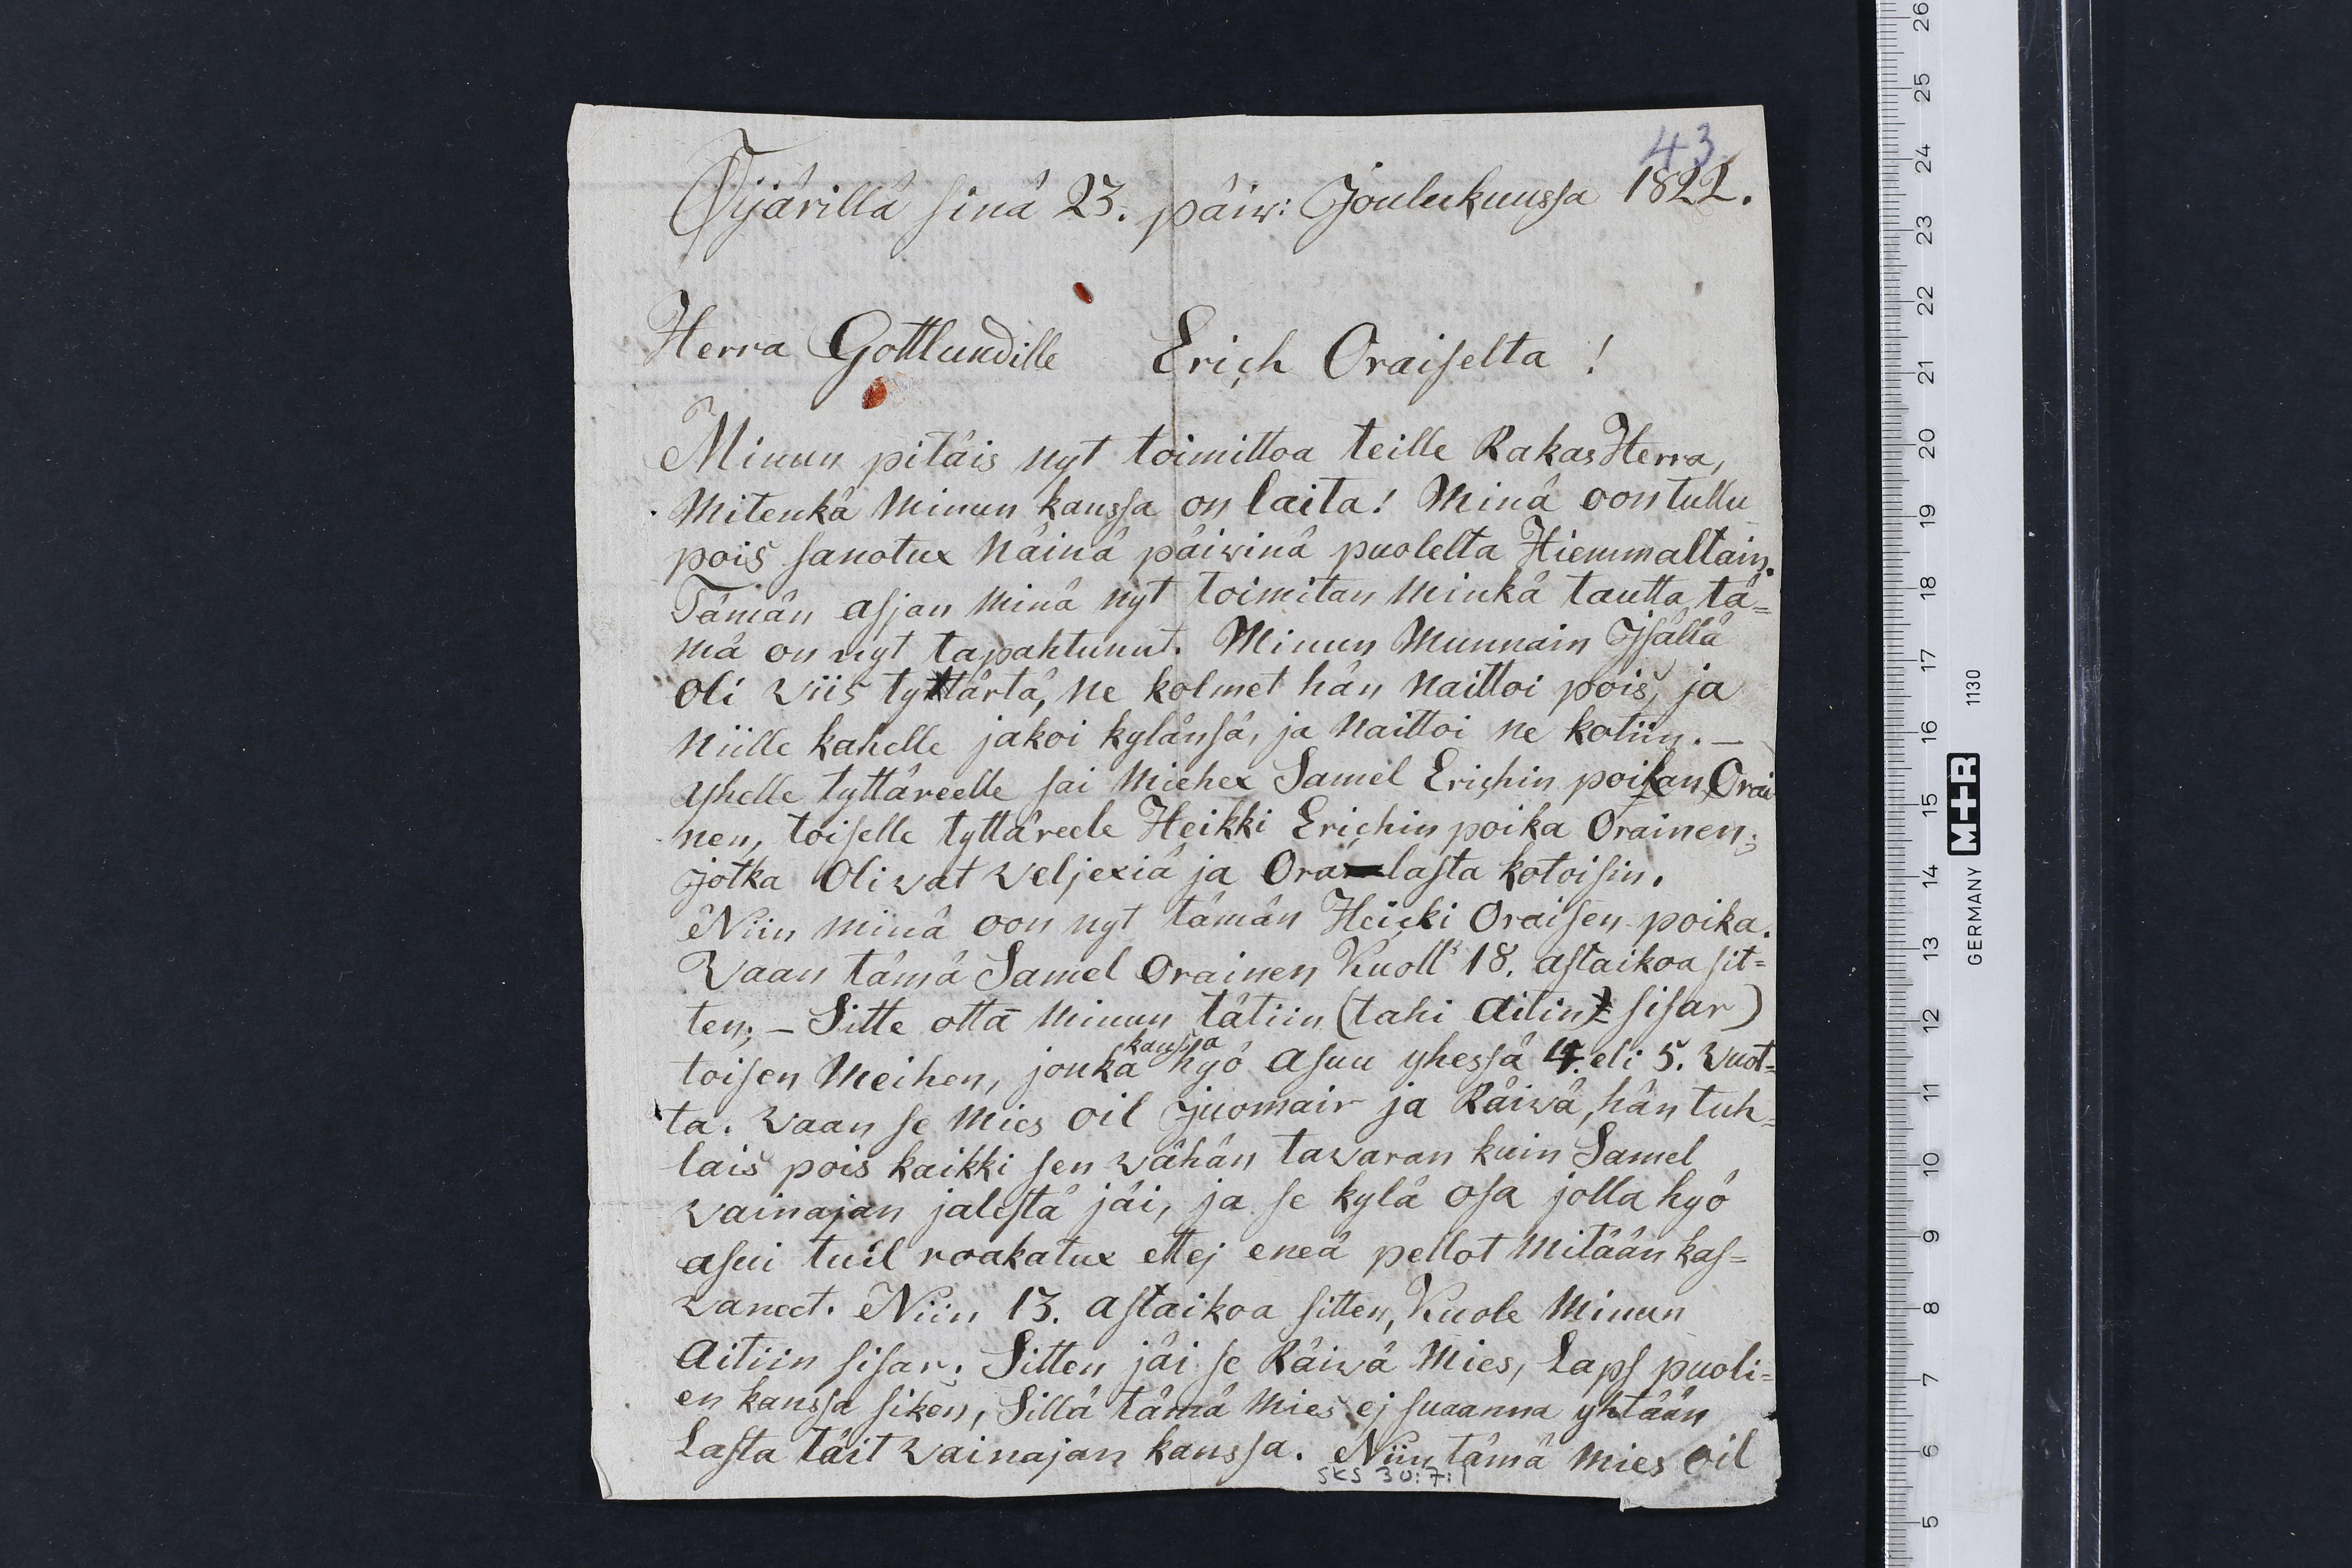 43.
Öijärillä sinä 23. päiw: Joulukuussa 1822.
Herra Gottlundille Erich Oraiselta!
Minun pitäis nyt toimittoa teille Rakas Herra,
mitenkä minun kanssa on laita! Minä oon tullu
pois sanotux näinä päiwinä puolelta Hiemmaltain.
Tämän asjan minä nyt toimitan minkä tautta tä=
mä on nyt tapahtunut. Minun Munnain Isällä
oli viis tyttärtä, ne kolmet hän naittoi pois, ja
niille kahelle jakoi kylänsä, ja naittoi ne kotiin. —
yhelle tyttäreelle sai miehex Samel Erichin poikan Orai
nen, toiselle tyttäreele Heikki Erichin poika Orainen;
jotka oliwat veljexiä ja Oralasta kotoisin.
Niin minä oon nyt tämän Heicki Oraisen poika.
Vaan tämä Samel Orainen Kuoll 18. astaikoa sit=
ten; — Sitte otta minun tätiin (tahi aitin sisar)
toisen Meihen, jonka kanssa hyö asuu yhessä 4. eli 5. vuot=
ta. vaan se mies oil juomair ja Räiwä, hän tuh=
lais pois kaikki sen vähän tawaran kuin Samel
vainajan jalestä jäi, ja se kylä osa jolla hyö
asui tuil roakatux ettej eneä pellot mitään kas=
vaneet. Niin 13. astaikoa sitten, Kuole minun
aitiin sisar; Sitten jäi se Räiwä mies, Laps puoli=
en kanssa siken, Sillä tämä mies ej suaanna yhtään
Lasta täit vainajan kanssa. Niin tämä mies oil
SKS 30:7:1
26
25
24
23
22
21
20
19
18
17
16
15
14
13
12
11
10
9
8
7
6
5
GERMANY M+R 1130